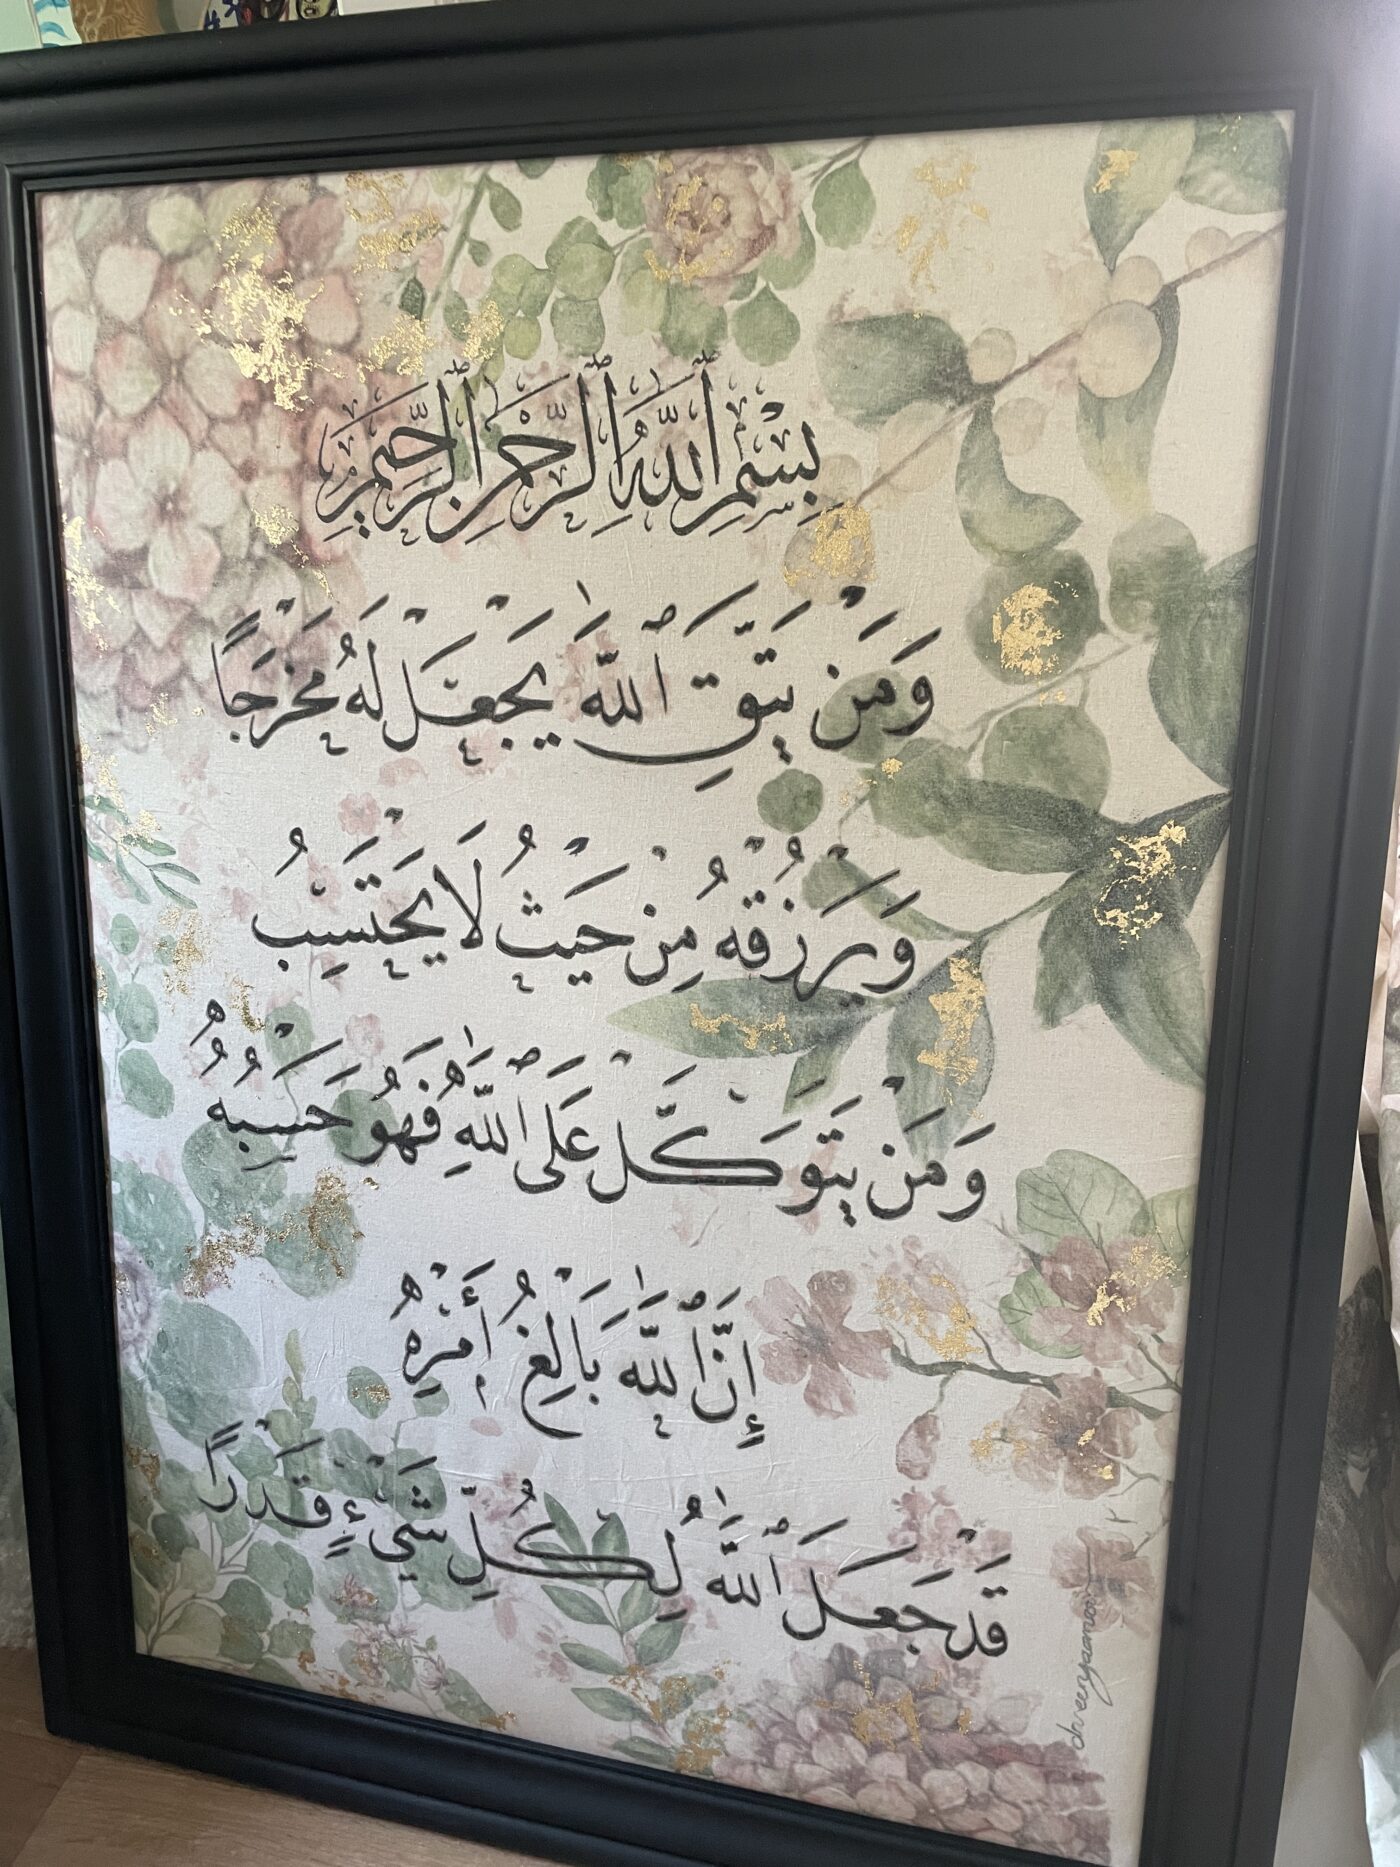 بِسْمِ ٱللَّهِ ٱلرَّحْمَٰنِ ٱلرَّحِيمِ
وَمَنْ يَتَّقِ ٱللَّهَ يَجْعَلْ لَهُ مَخْرَجًا
وَيَرْزُقْهُ مِنْ حَيْثُ لَا يَحْتَسِبُ
وَمَنْ يَتَوَكَّلْ عَلَى ٱللَّهِ فَهُوَ حَسْبُهُ
إِنَّ ٱللَّهَ بَالِغُ أَمْرِهِ
قَدْ جَعَلَ ٱللَّهُ لِكُلِّ شَيْءٍ قَدْرًا